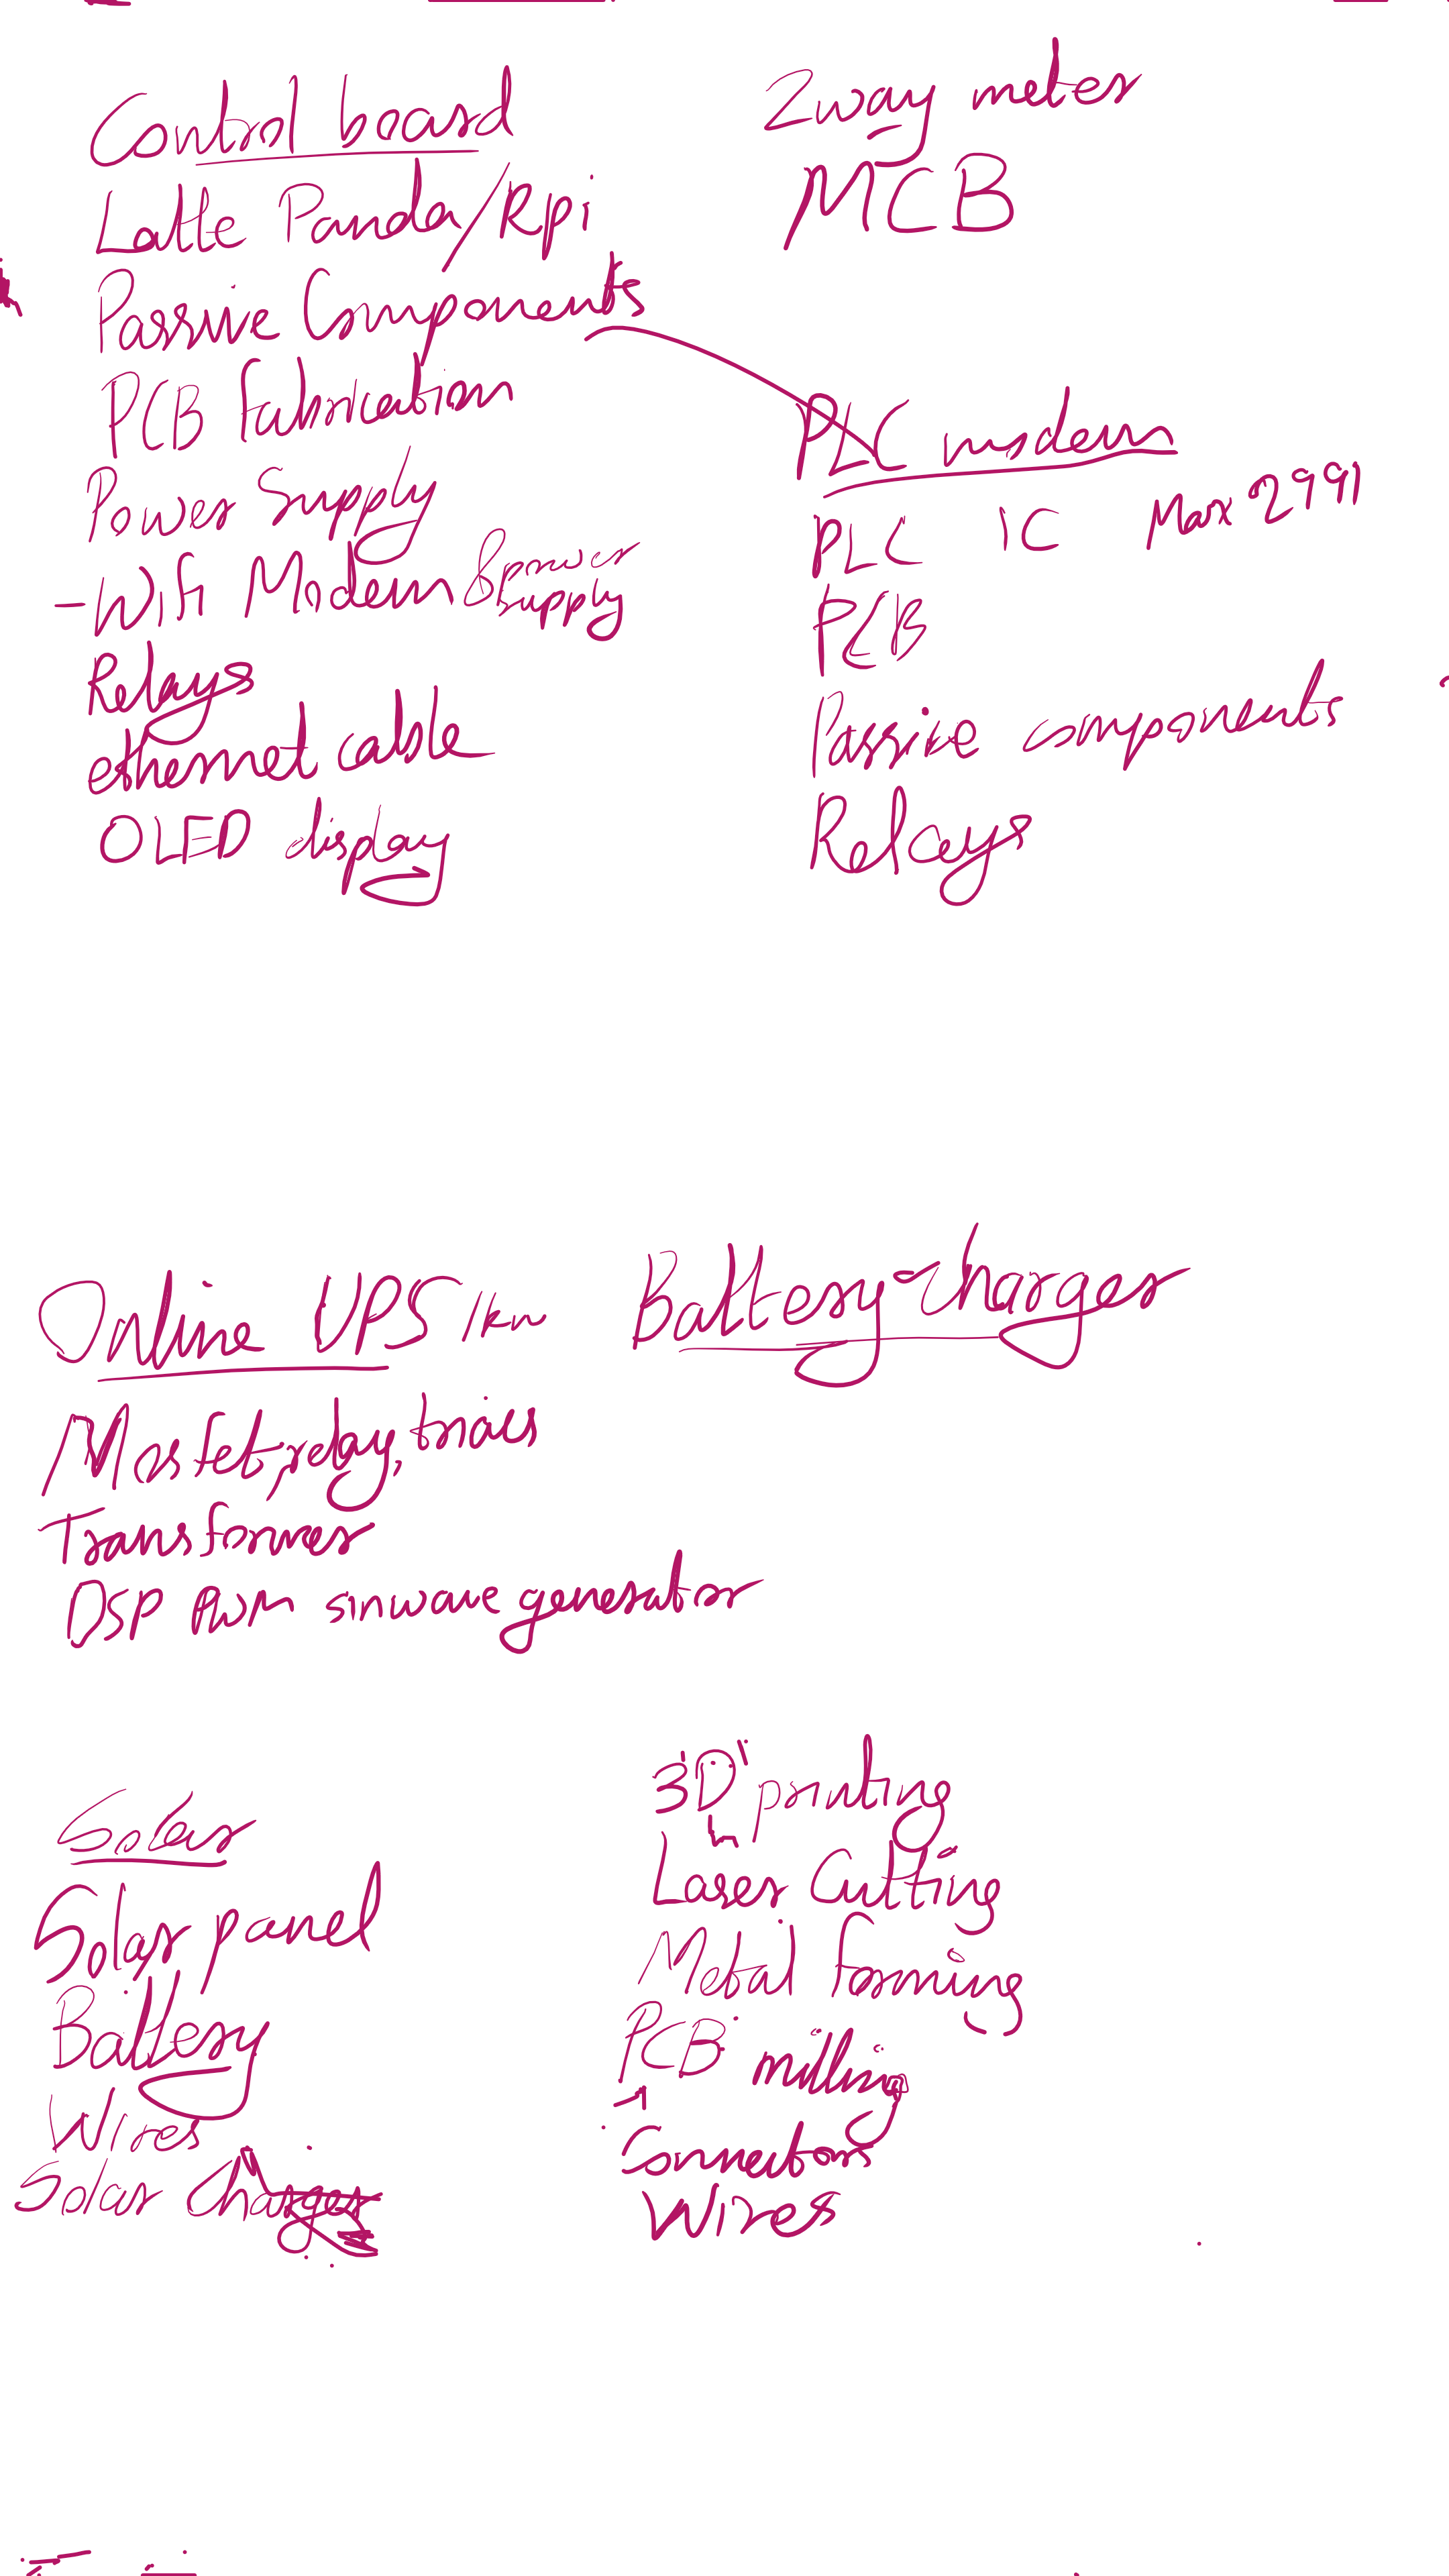 Control board
Latte Panda/Rpi
Passive Components
PCB fabrication
Power Supply
-Wifi Modem & power supply
Relays
ethernet cable
OLED display
2way meter
MCB
PLC modem
PLC IC Max 2991
PCB
Passive components
Relays
Online UPS 1kw
Mosfet, relay, triacs
Transformer
DSP PWM sinwave generator
Battery charger
Solar
Solar panel
Battery
Wires
Solar Charger
3D printing
Laser Cutting
Metal forming
PCB milling
Connectors
Wires